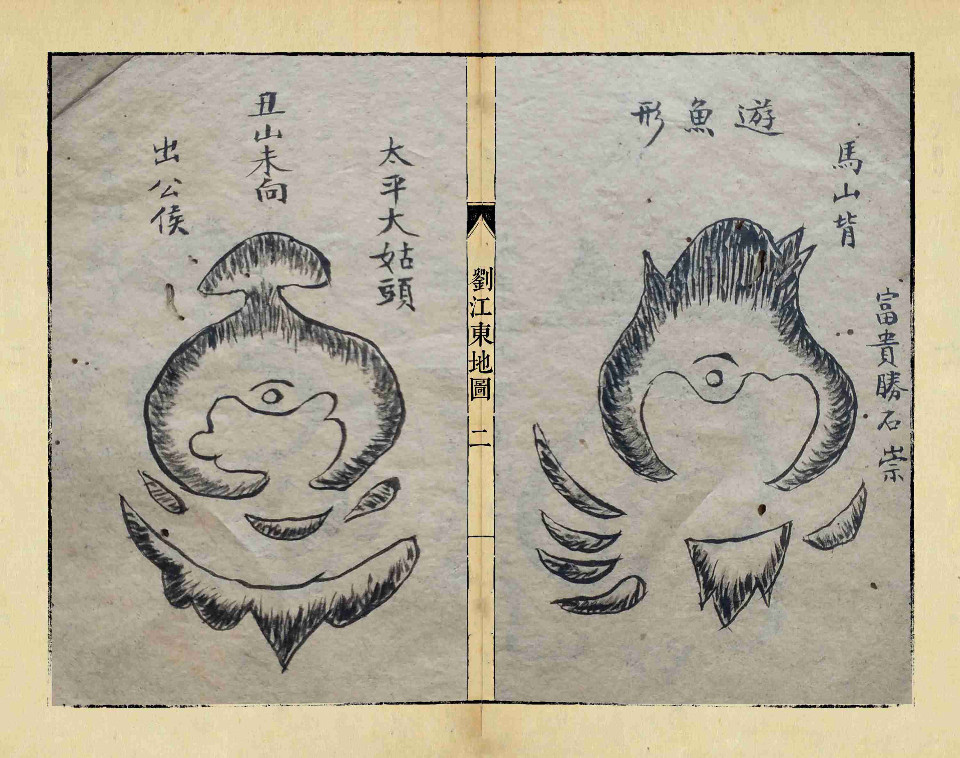 遊魚形
馬山背
富貴勝石崇
劉江東地圖 二
太平大姑頭
丑山未向
出公侯